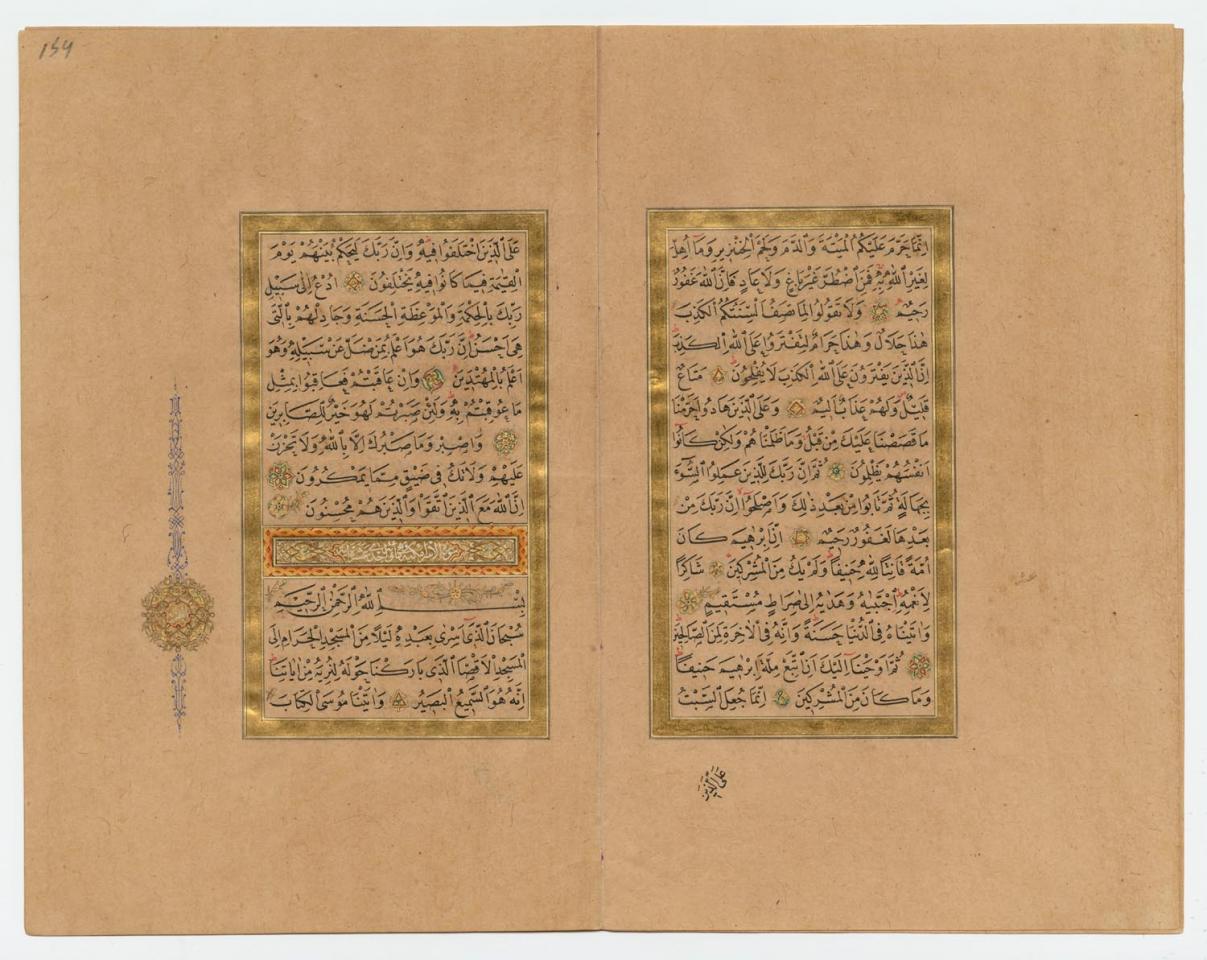 اِنَّمَا حَرَّمَ عَلَيْكُمُ الْمَيْتَةَ وَالدَّمَ وَلَحْمَ الْخِنْزِيرِ وَمَآ اُهِلَّ
لِغَيْرِ اللّٰهِ بِهٖ فَمَنِ اضْطُرَّ غَيْرَ بَاغٍ وَلَا عَادٍ فَاِنَّ اللّٰهَ غَفُورٌ
رَحِيمٌ وَلَا تَقُولُوا لِمَا تَصِفُ اَلْسِنَتُكُمُ الْكَذِبَ
هٰذَا حَلَالٌ وَهٰذَا حَرَامٌ لِتَفْتَرُوا عَلَى اللّٰهِ الْكَذِبَ
اِنَّ الَّذِينَ يَفْتَرُونَ عَلَى اللّٰهِ الْكَذِبَ لَا يُفْلِحُونَ مَتَاعٌ
قَلِيلٌ وَلَهُمْ عَذَابٌ اَلِيمٌ وَعَلَى الَّذِينَ هَادُوا حَرَّمْنَا
مَا قَصَصْنَا عَلَيْكَ مِنْ قَبْلُ وَمَا ظَلَمْنَاهُمْ وَلٰكِنْ كَانُوا
اَنْفُسَهُمْ يَظْلِمُونَ ثُمَّ اِنَّ رَبَّكَ لِلَّذِينَ عَمِلُوا السُّوٓءَ
بِجَهَالَةٍ ثُمَّ تَابُوا مِنْ بَعْدِ ذٰلِكَ وَاَصْلَحُوا اِنَّ رَبَّكَ مِنْ
بَعْدِهَا لَغَفُورٌ رَحِيمٌ اِنَّ اِبْرٰهِيمَ كَانَ
اُمَّةً قَانِتًا لِلّٰهِ حَنِيفًا وَلَمْ يَكُ مِنَ الْمُشْرِكِينَ شَاكِرًا
لِاَنْعُمِهِ اجْتَبٰيهُ وَهَدٰيهُ اِلٰى صِرَاطٍ مُسْتَقِيمٍ
وَاٰتَيْنَاهُ فِى الدُّنْيَا حَسَنَةً وَاِنَّهُ فِى الْاٰخِرَةِ لَمِنَ الصَّالِحِينَ
ثُمَّ اَوْحَيْنَا اِلَيْكَ اَنِ اتَّبِعْ مِلَّةَ اِبْرٰهِيمَ حَنِيفًا
وَمَا كَانَ مِنَ الْمُشْرِكِينَ اِنَّمَا جُعِلَ السَّبْتُ
عَلَى الَّذِينَ
159
عَلَى الَّذِينَ اخْتَلَفُوا فِيهِ وَاِنَّ رَبَّكَ لَيَحْكُمُ بَيْنَهُمْ يَوْمَ
الْقِيٰمَةِ فِيمَا كَانُوا فِيهِ يَخْتَلِفُونَ اُدْعُ اِلٰى سَبِيلِ
رَبِّكَ بِالْحِكْمَةِ وَالْمَوْعِظَةِ الْحَسَنَةِ وَجَادِلْهُمْ بِالَّتِى
هِىَ اَحْسَنُ اِنَّ رَبَّكَ هُوَ اَعْلَمُ بِمَنْ ضَلَّ عَنْ سَبِيلِهٖ وَهُوَ
اَعْلَمُ بِالْمُهْتَدِينَ وَاِنْ عَاقَبْتُمْ فَعَاقِبُوا بِمِثْلِ
مَا عُوقِبْتُمْ بِهٖ وَلَئِنْ صَبَرْتُمْ لَهُوَ خَيْرٌ لِلصَّابِرِينَ
وَاصْبِرْ وَمَا صَبْرُكَ اِلَّا بِاللّٰهِ وَلَا تَحْزَنْ
عَلَيْهِمْ وَلَا تَكُ فِى ضَيْقٍ مِمَّا يَمْكُرُونَ
اِنَّ اللّٰهَ مَعَ الَّذِينَ اتَّقَوْا وَالَّذِينَ هُمْ مُحْسِنُونَ
بِسْمِ اللّٰهِ الرَّحْمٰنِ الرَّحِيمِ
سُبْحَانَ الَّذِىٓ اَسْرٰى بِعَبْدِهٖ لَيْلًا مِنَ الْمَسْجِدِ الْحَرَامِ اِلَى
الْمَسْجِدِ الْاَقْصَا الَّذِى بَارَكْنَا حَوْلَهُ لِنُرِيَهُ مِنْ اٰيَاتِنَا
اِنَّهُ هُوَ السَّمِيعُ الْبَصِيرُ وَاٰتَيْنَا مُوسَى الْكِتَابَ